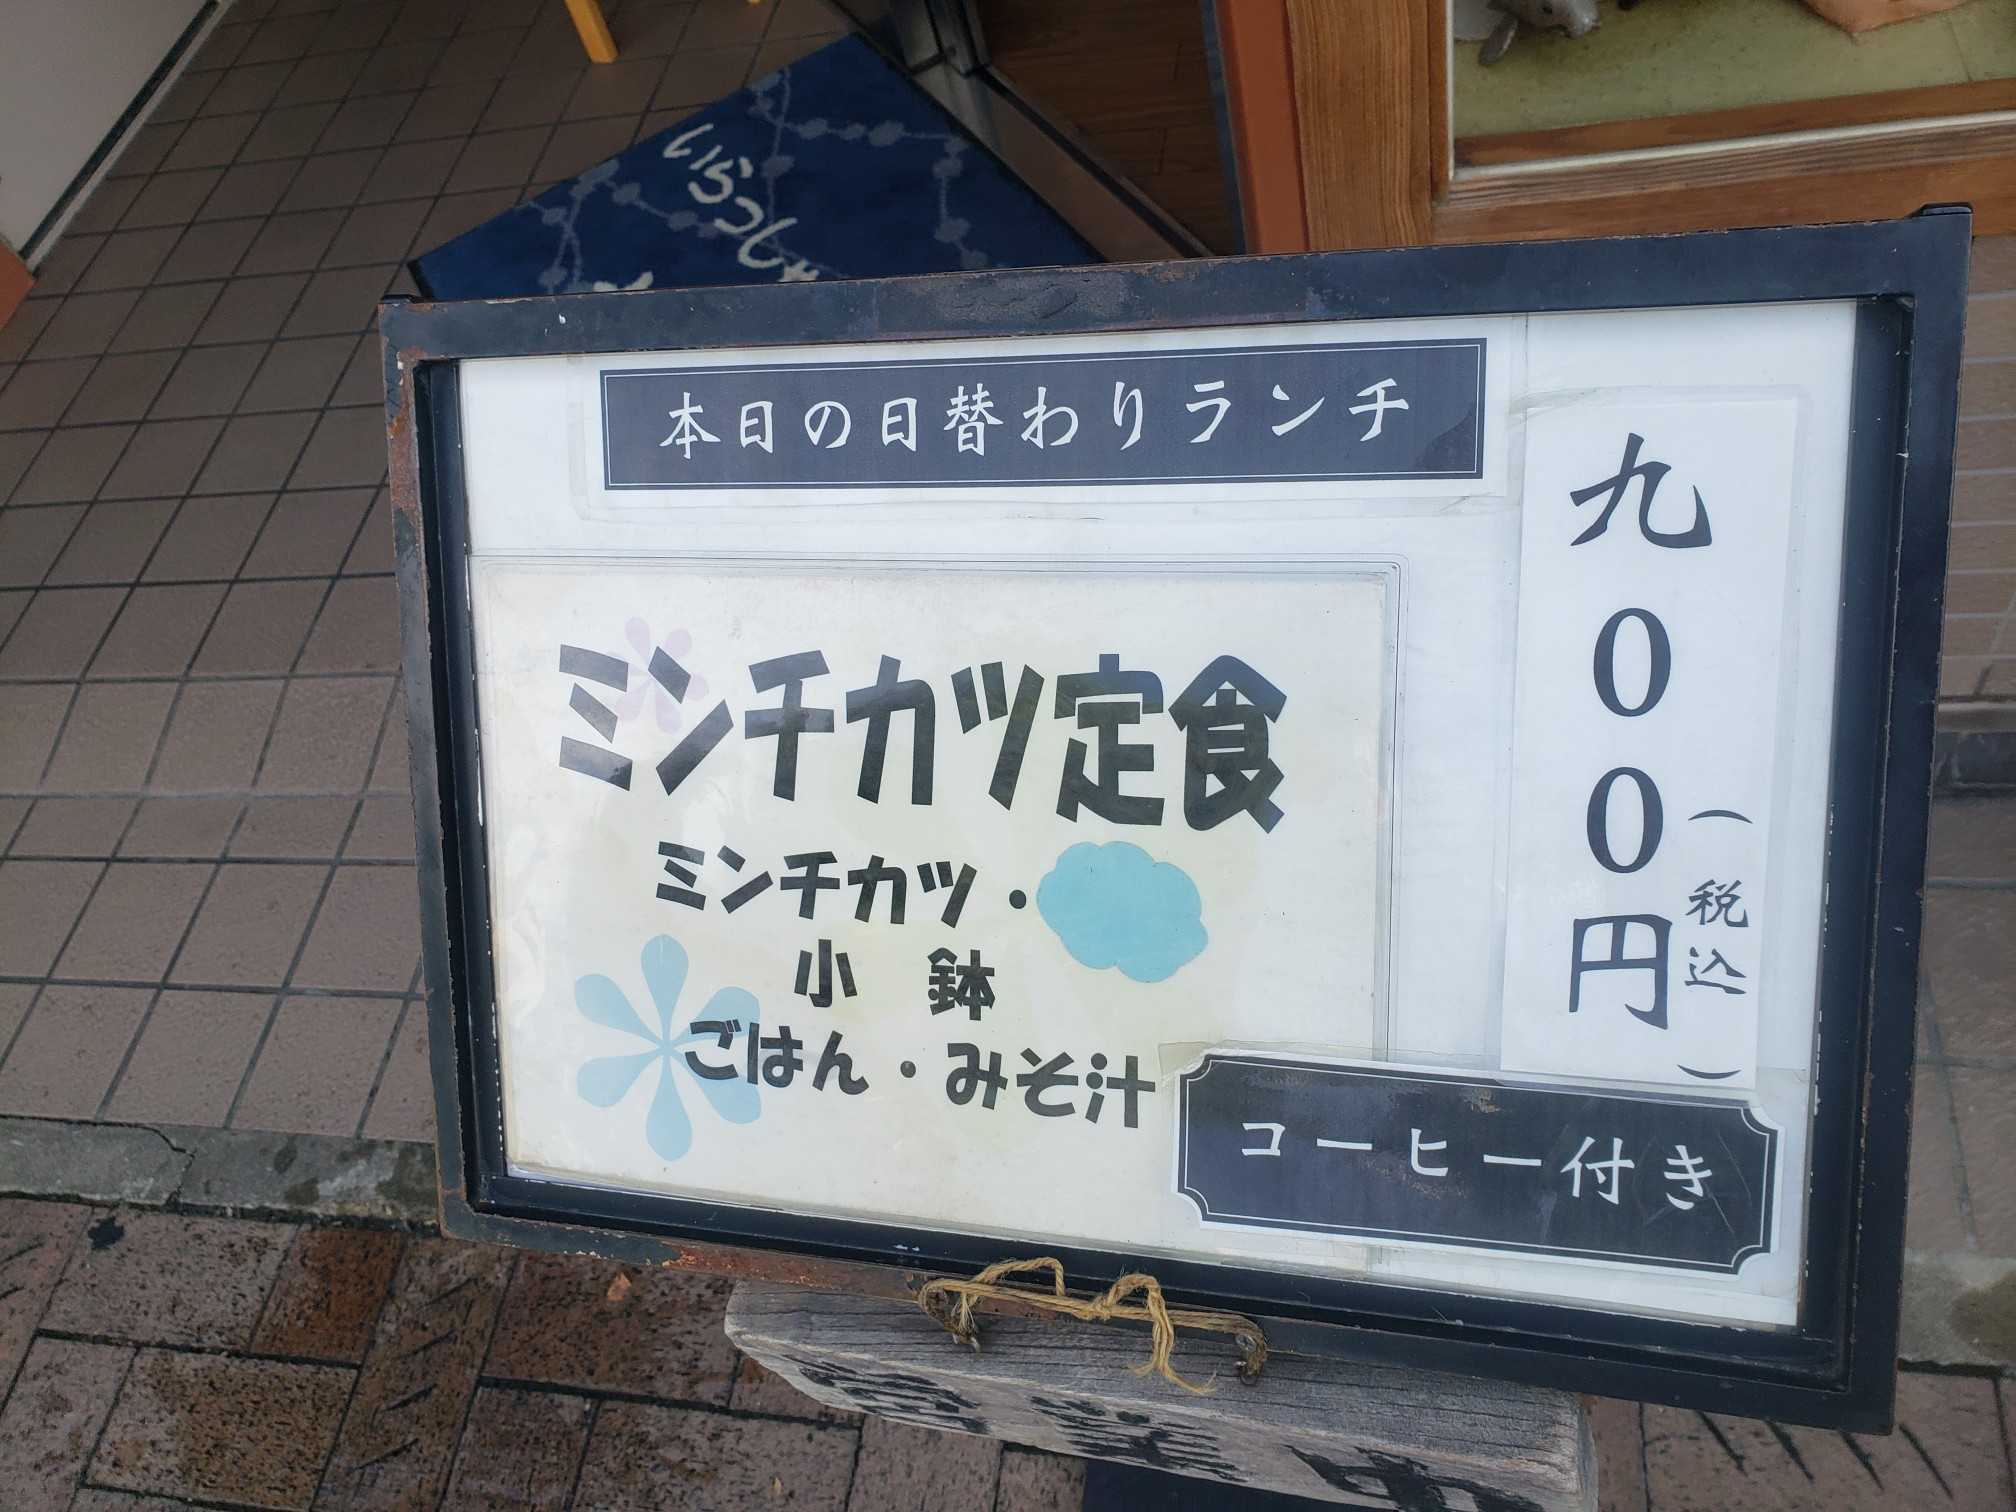 いらっしゃ
本日の日替わりランチ
九00円
(税込)
ミンチカツ定食
ミンチカツ・
小 鉢
ごはん・みそ汁
コーヒー付き